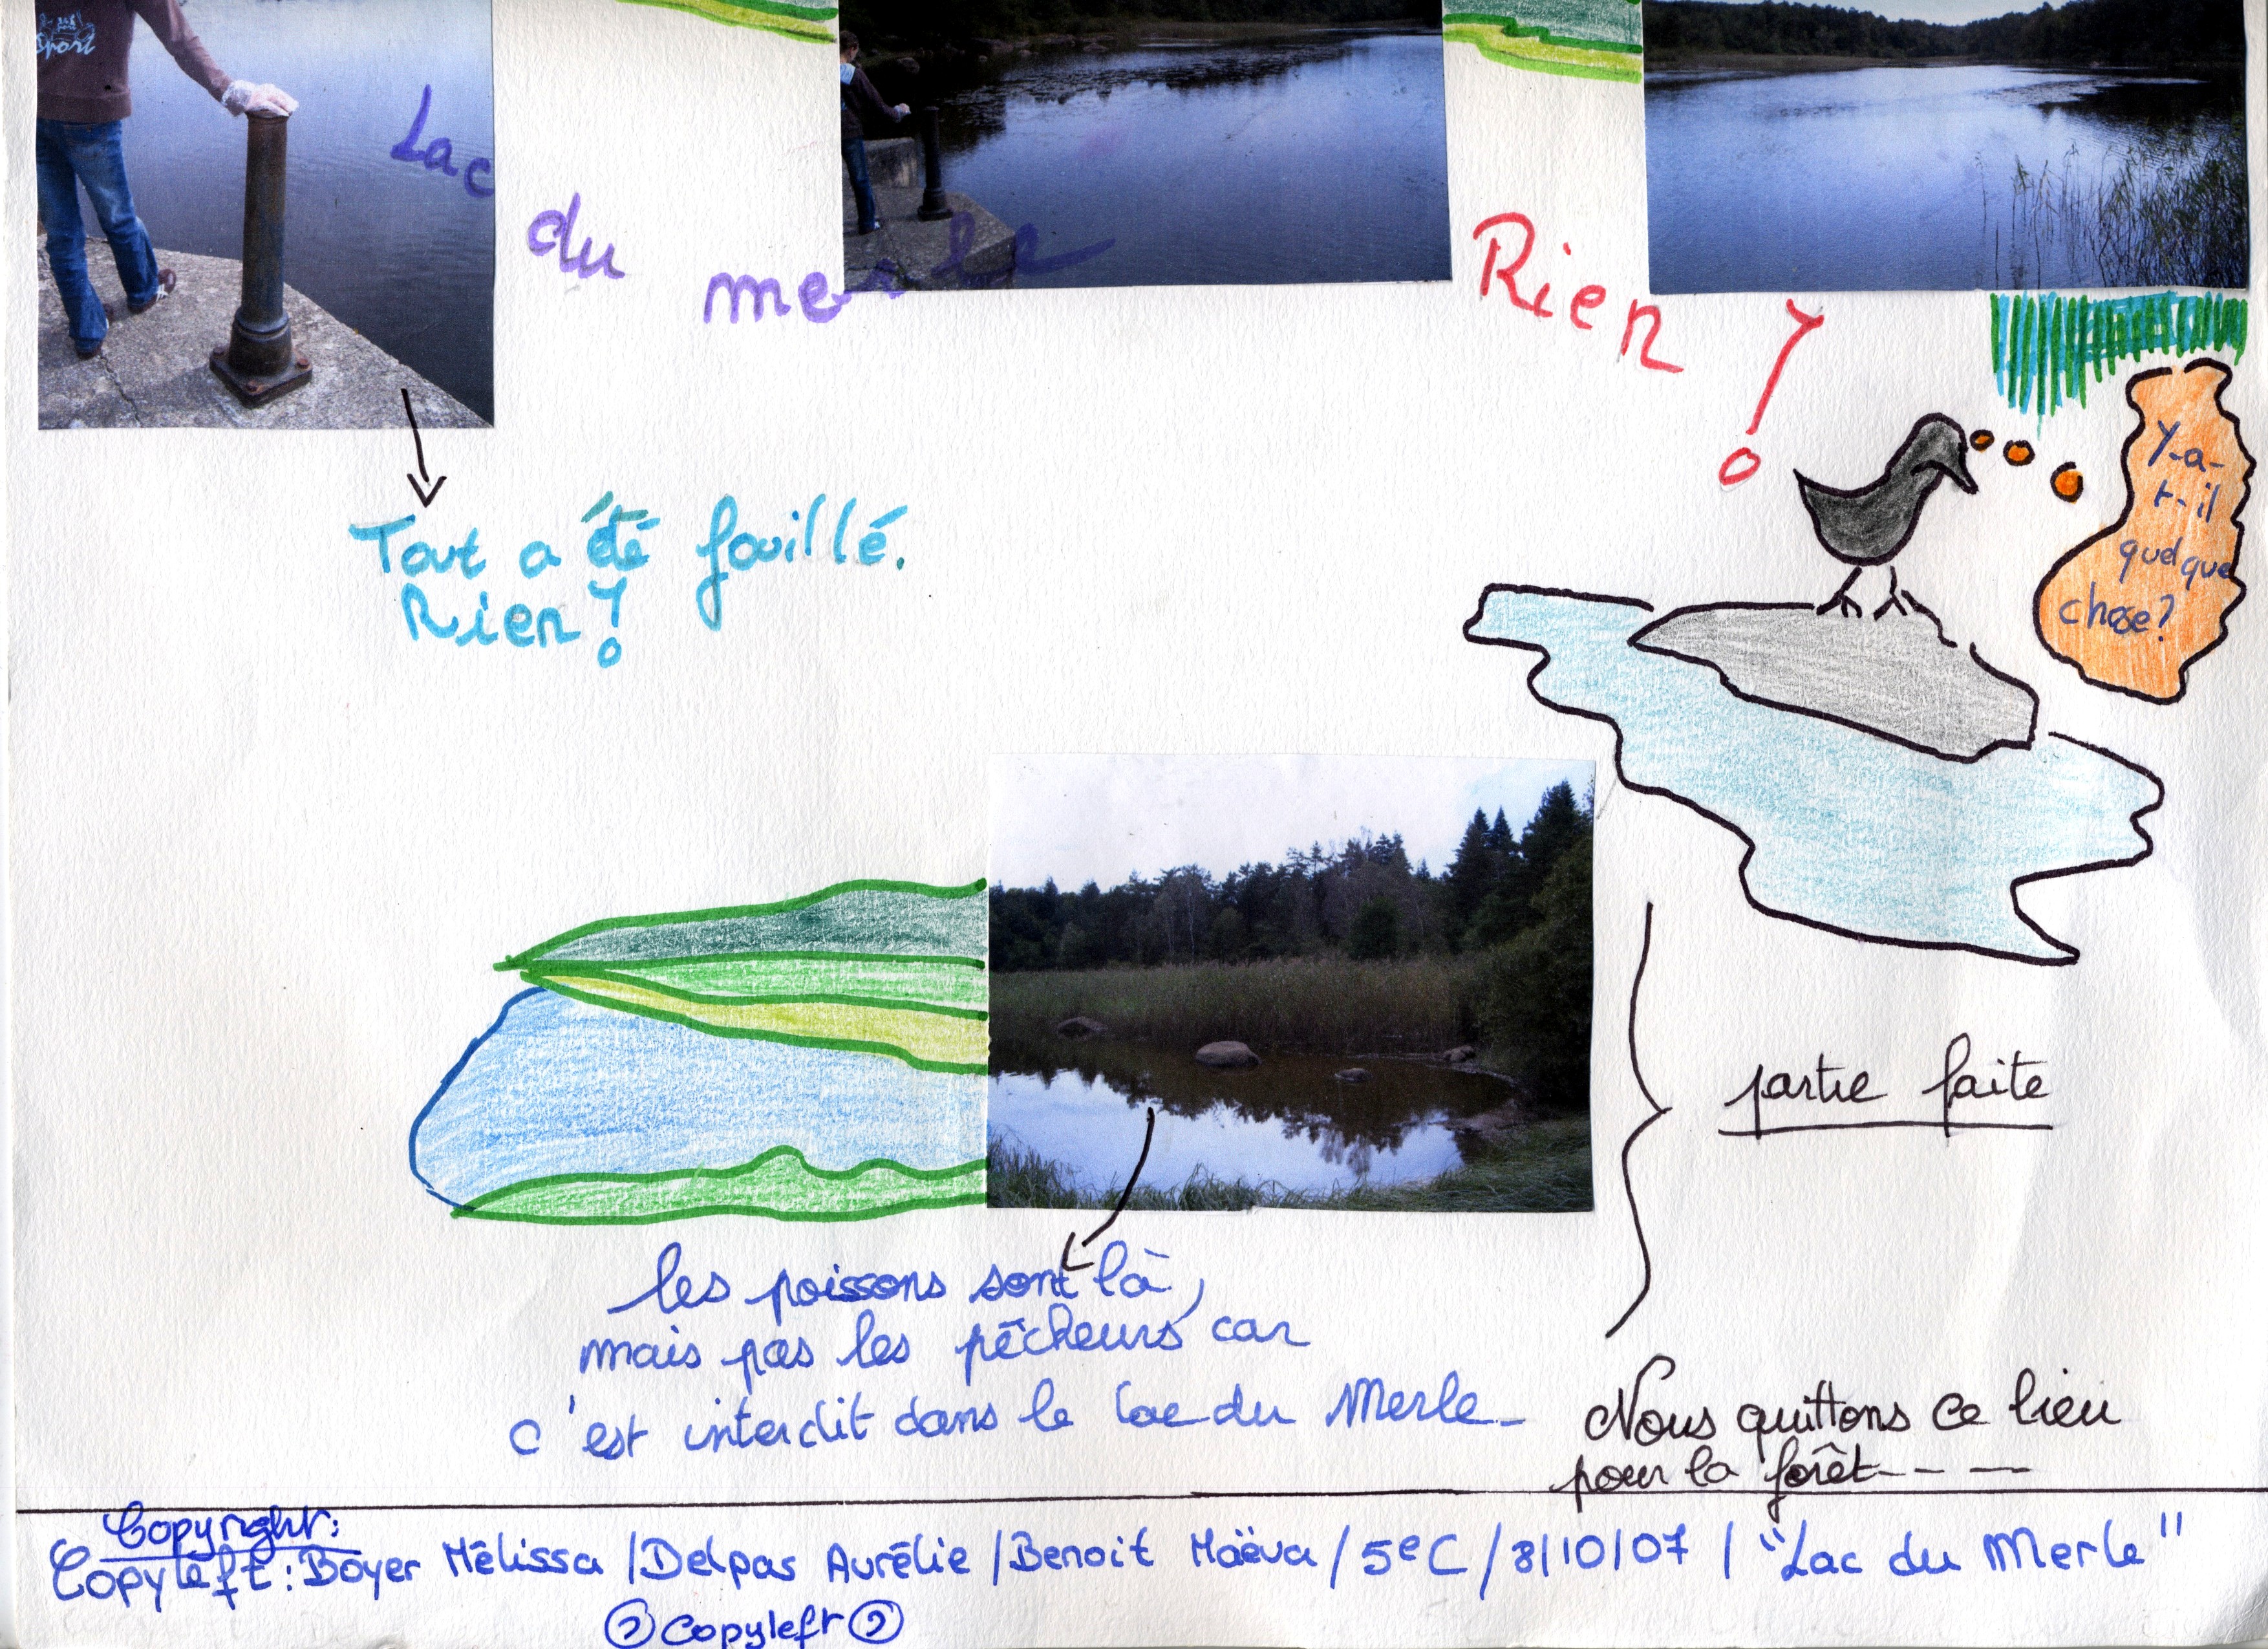 Sport
Lac du merle
Rien !
Tout a été fouillé.
Rien !
Y-a-
t-il
quelque
chose ?
partie faite
les poissons sont là,
mais pas les pêcheurs car
c'est interdit dans le lac du Merle.
Nous quittons ce lieu
pour la forêt - - - -
Copyright:
Copyleft : Boyer Mélissa / Delpas Aurélie / Benoit Maëva / 5eC / 8/10/07 / "Lac du Merle"
Copyleft